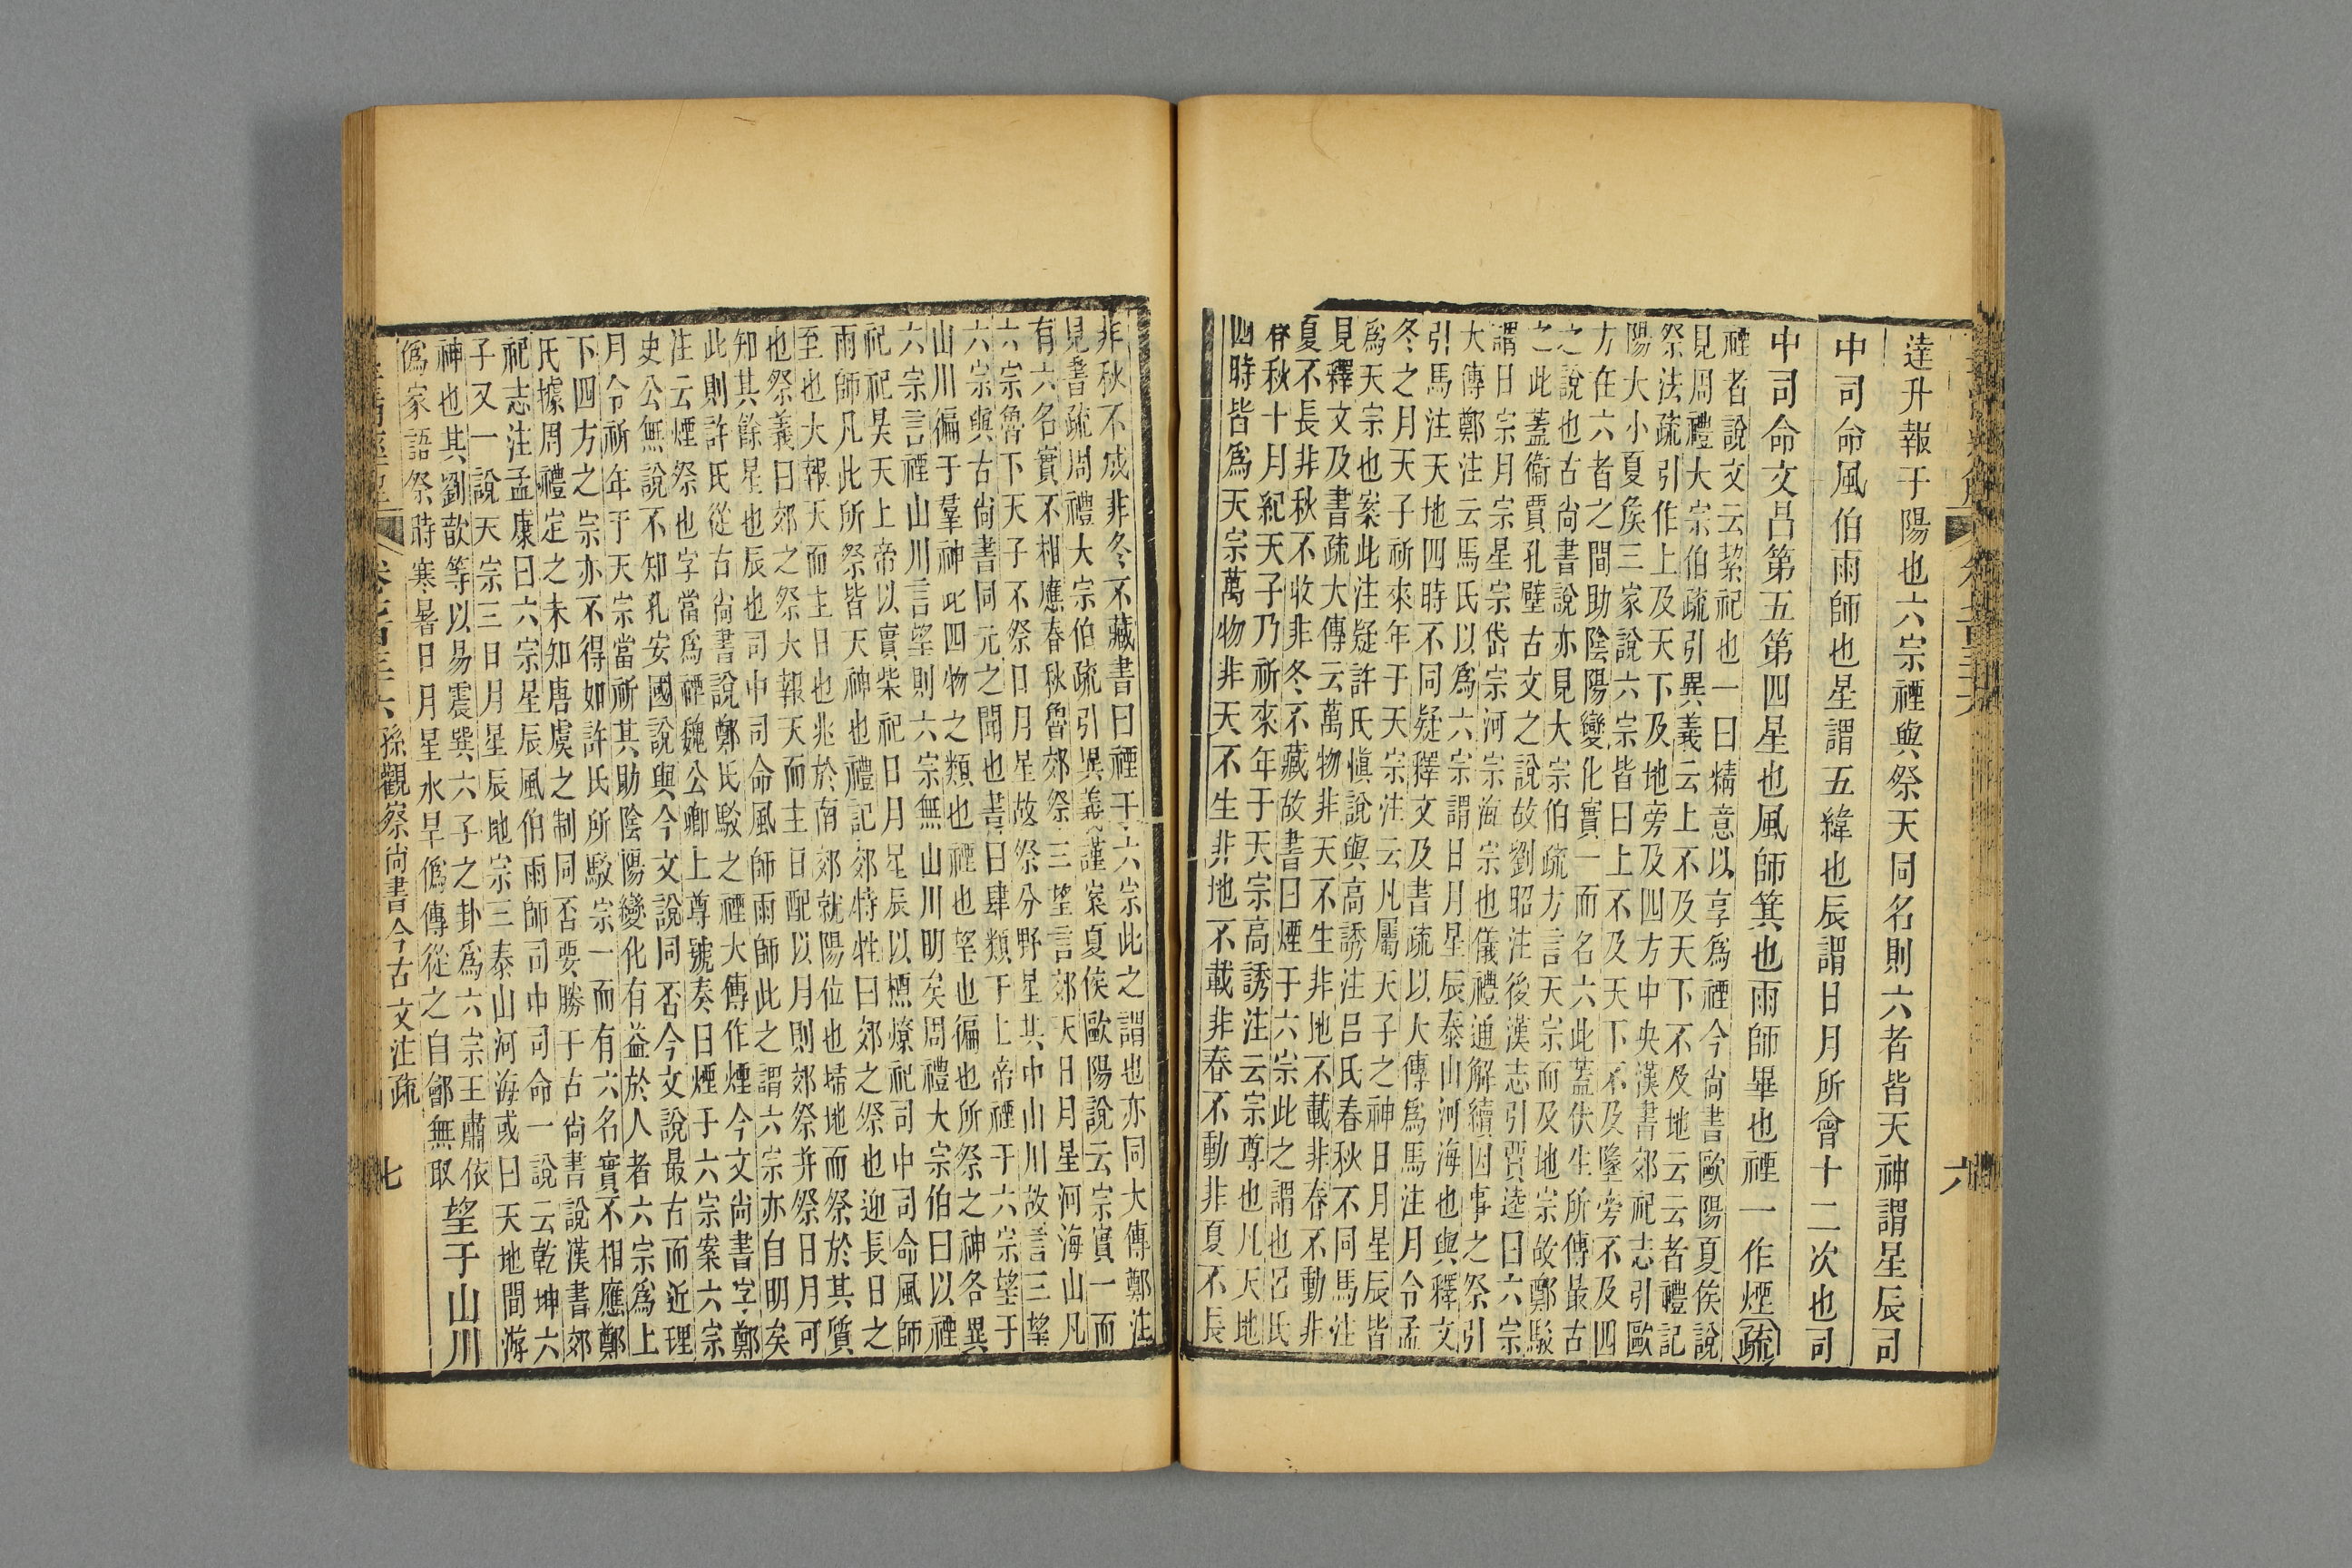 達升報于陽也六宗禋與祭天同名則六者皆天神謂星辰司
中司命風伯雨師也星謂五緯也辰謂日月所會十二次也司
中司命文昌第五第四星也風師箕也雨師畢也禋一作煙疏
禋者說文云絜祀也一曰精意以享為禋今尚書歐陽夏侯說
見周禮大宗伯疏引異義云上不及天下不及地云云者禮記
祭法疏引作上及天下及地旁及四方中央漢書郊祀志引歐
陽大小夏侯三家說六宗皆曰上不及天下不及墬旁不及四
方在六者之間助陰陽變化實一而名六此蓋伏生所傳最古
之說也古尚書說亦見大宗伯疏方言天宗而及地宗故鄭駮
之此蓋衞賈孔壁古文之說故劉昭注後漢志引賈逵曰六宗
謂日宗月宗星宗岱宗河宗海宗也儀禮通解續因事之祭引
大傳鄭注云馬氏以為六宗謂日月星辰泰山河海也與釋文
引馬注天地四時不同疑釋文及書疏以大傳為馬注月令孟
冬之月天子祈來年于天宗注云凡屬天子之神日月星辰皆
為天宗也案此注疑許氏愼說與高誘注呂氏春秋不同馬注
見釋文及書疏大傳云萬物非天不生非地不載非春不動非
夏不長非秋不收非冬不藏故書曰煙于六宗此之謂也呂氏
春秋十月紀天子乃祈來年于天宗高誘注云宗尊也凡天地
四時皆為天宗萬物非天不生非地不載非春不動非夏不長
六
非秋不成非冬不藏書曰禋于六宗此之謂也亦同大傳鄭注
見書疏周禮大宗伯疏引異義謹案夏侯歐陽說云宗實一而
有六名實不相應春秋魯郊祭三望言郊天日月星河海山凡
六宗魯下天子不祭日月星故祭分野星其中山川故言三望
六宗與古尚書同元之聞也書曰肆類于上帝禋于六宗望于
山川徧于羣神此四物之類也禋也望也徧也所祭之神各異
六宗言禋山川言望則六宗無山川明矣周禮大宗伯曰以禋
祀祀昊天上帝以實柴祀日月星辰以槱燎祀司中司命風師
雨師凡此所祭皆天神也禮記郊特牲曰郊之祭也迎長日之
至也大報天而主日也兆於南郊就陽位也埽地而祭於其質
也祭義曰郊之祭大報天而主日配以月則郊祭并祭日月可
知其餘星也辰也司中司命風師雨師此之謂六宗亦自明矣
此則許氏從古尚書說鄭氏駮之禋大傳作煙今文尚書字鄭
注云煙祭也字當為禋魏公卿上尊號奏曰煙于六宗案六宗
史公無說不知孔安國說與今文說同否今文說最古而近理
月令祈年于天宗當祈其助陰陽變化有益於人者六宗為上
下四方之宗亦不得如許氏所駁宗一而有六名實不相應鄭
氏據周禮定之未知唐虞之制同否要勝于古尚書說漢書郊
祀志注孟康曰六宗星辰風伯雨師司中司命一說云乾坤六
子又一說天宗三日月星辰地宗三泰山河海或曰天地間游
神也其劉歆等以易震巽六子之卦為六宗王肅依
偽家語祭時寒暑日月星水旱偽傳從之自鄶無取望于山川
孫觀察尚書今古文注疏
七